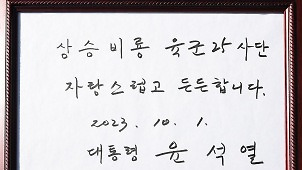 상승비룡 육군25사단
자랑스럽고 든든합니다.
2023. 10. 1.
대통령 윤석열